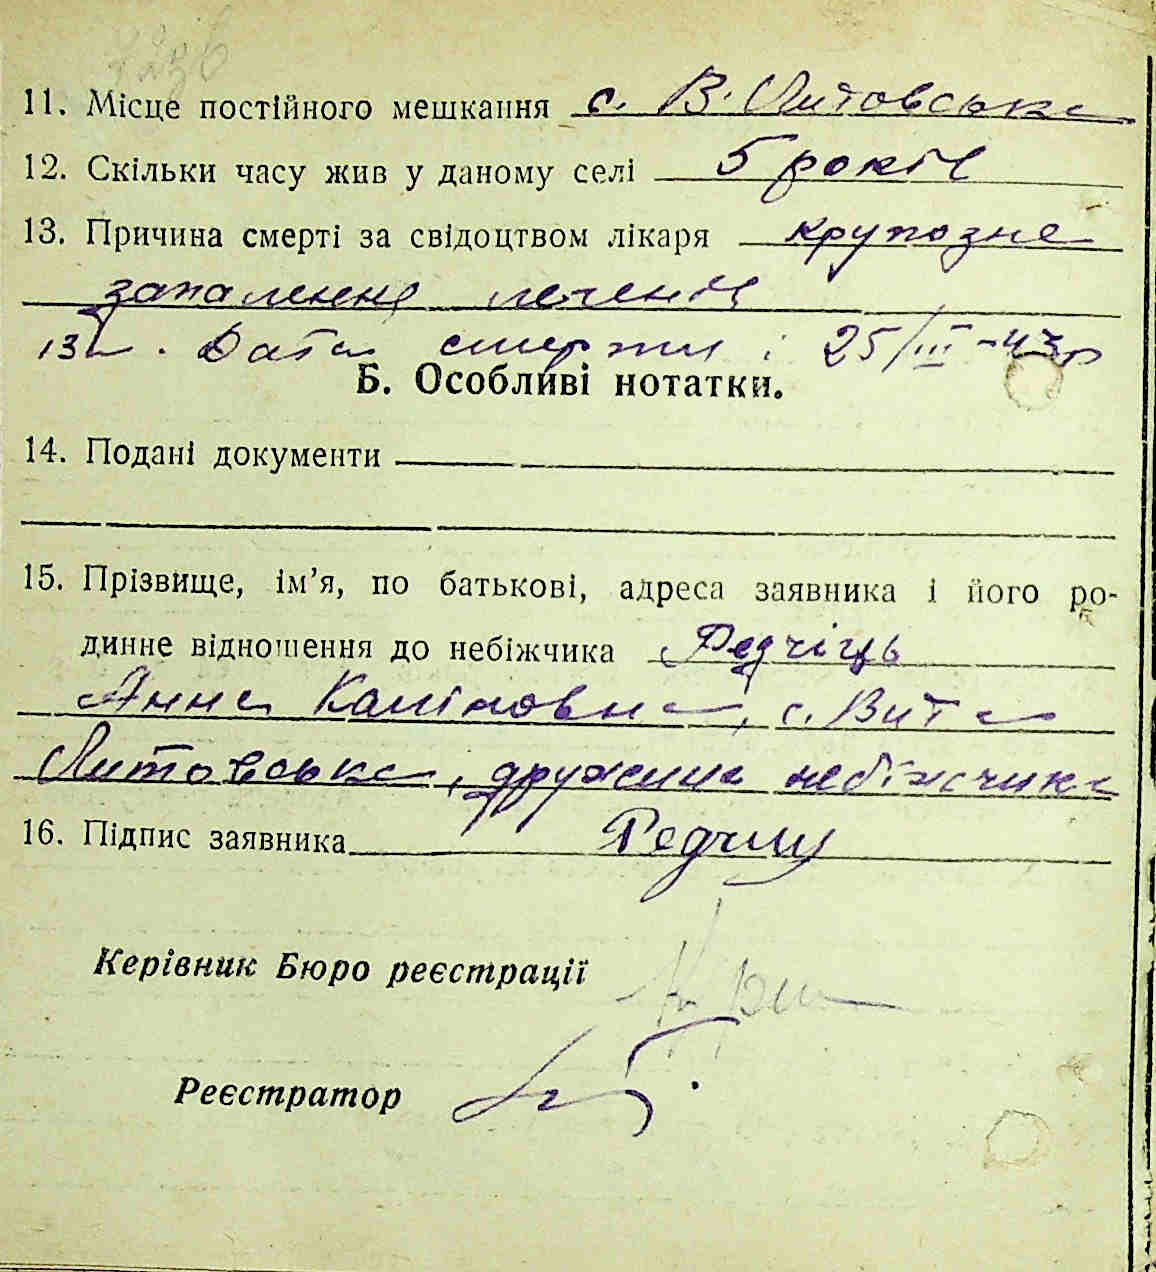 11. Місце постійного мешкання с. В. Литовська
12. Скільки часу жив у даному селі 5 років
13. Причина смерті за свідоцтвом лікаря крупозне
запалення легенів
13а. Дата смерти: 25/III-43р
Б. Особливі нотатки.
14. Подані документи
15. Прізвище, ім’я, по батькові, адреса заявника і його ро-
динне відношення до небіжчика Редчіць
Анна Калімовна, с. Вита
Литовська, дружина небіжчика
16. Підпис заявника Редчиц
Керівник Бюро реєстрації
Реєстратор